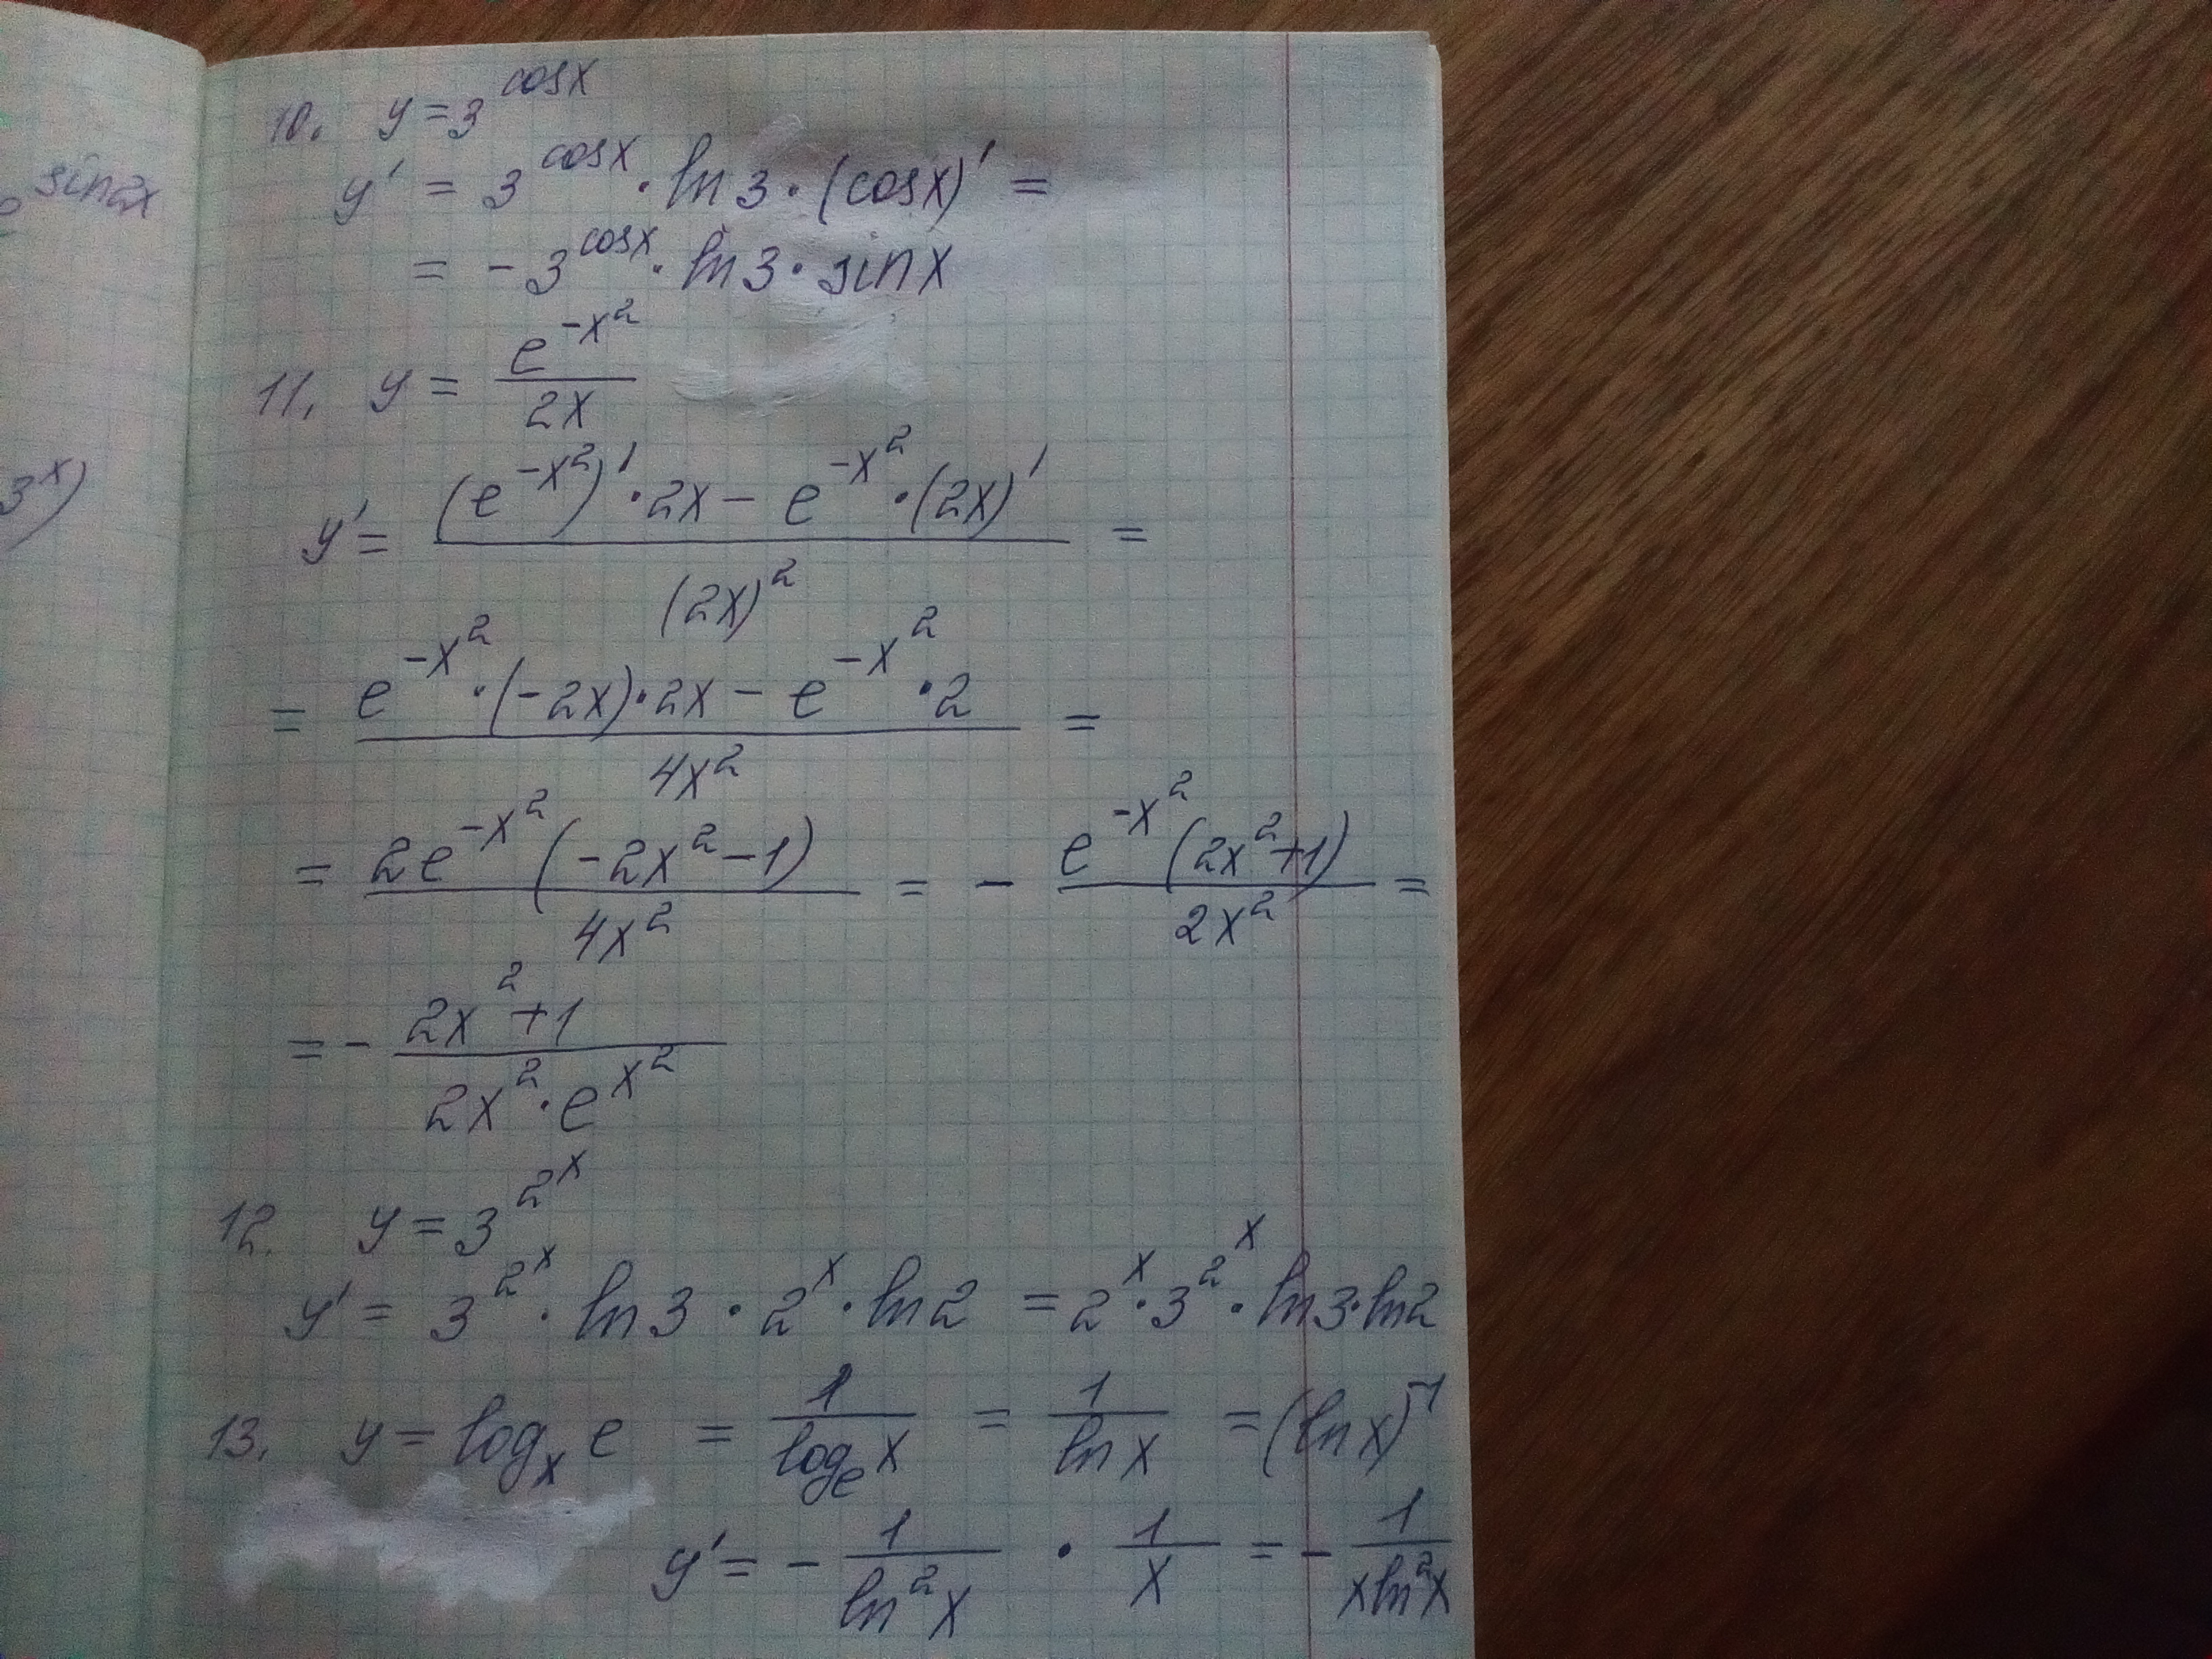 e^(sin2x)
3^x)
10. y = 3^(cosx)
y' = 3^(cosx) · ln3 · (cosx)' =
= -3^(cosx) · ln3 · sinx
11. y = e^(-x²)/2x
y' = ((e^(-x²))' · 2x - e^(-x²) · (2x)')/(2x)² =
= (e^(-x²) · (-2x) · 2x - e^(-x²) · 2)/4x² =
= 2e^(-x²)(-2x² - 1)/4x² = - e^(-x²)(2x²+1)/2x² =
= - (2x²+1)/(2x² · e^(x²))
12. y = 3^(2^x)
y' = 3^(2^x) · ln3 · 2^x · ln2 = 2^x · 3^(2^x) · ln3 · ln2
13. y = logₓ e = 1/logₑ x = 1/ln x = (ln x)⁻¹
y' = - 1/ln²x · 1/x = - 1/(x ln²x)